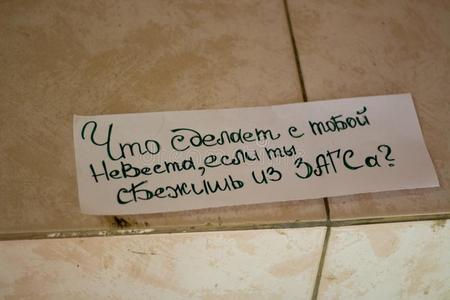 Что сделает с тобой
невеста, если ты
сбежишь из ЗАГСа?